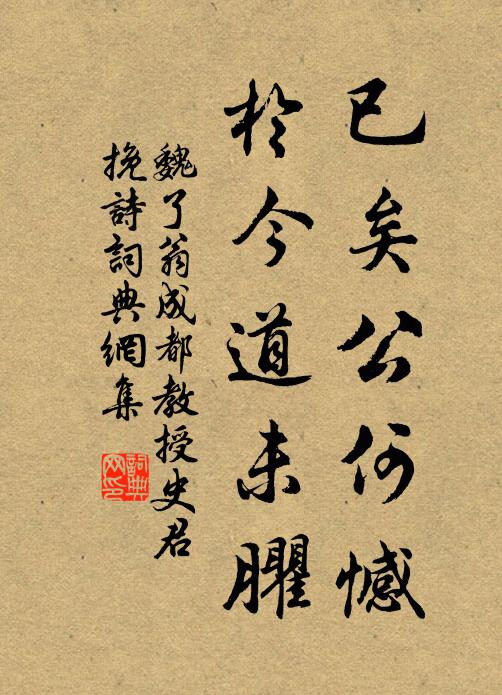 已矣公何憾
於今道未臞
魏了翁成都教授史君
挽詩詞典網集
詞典網印